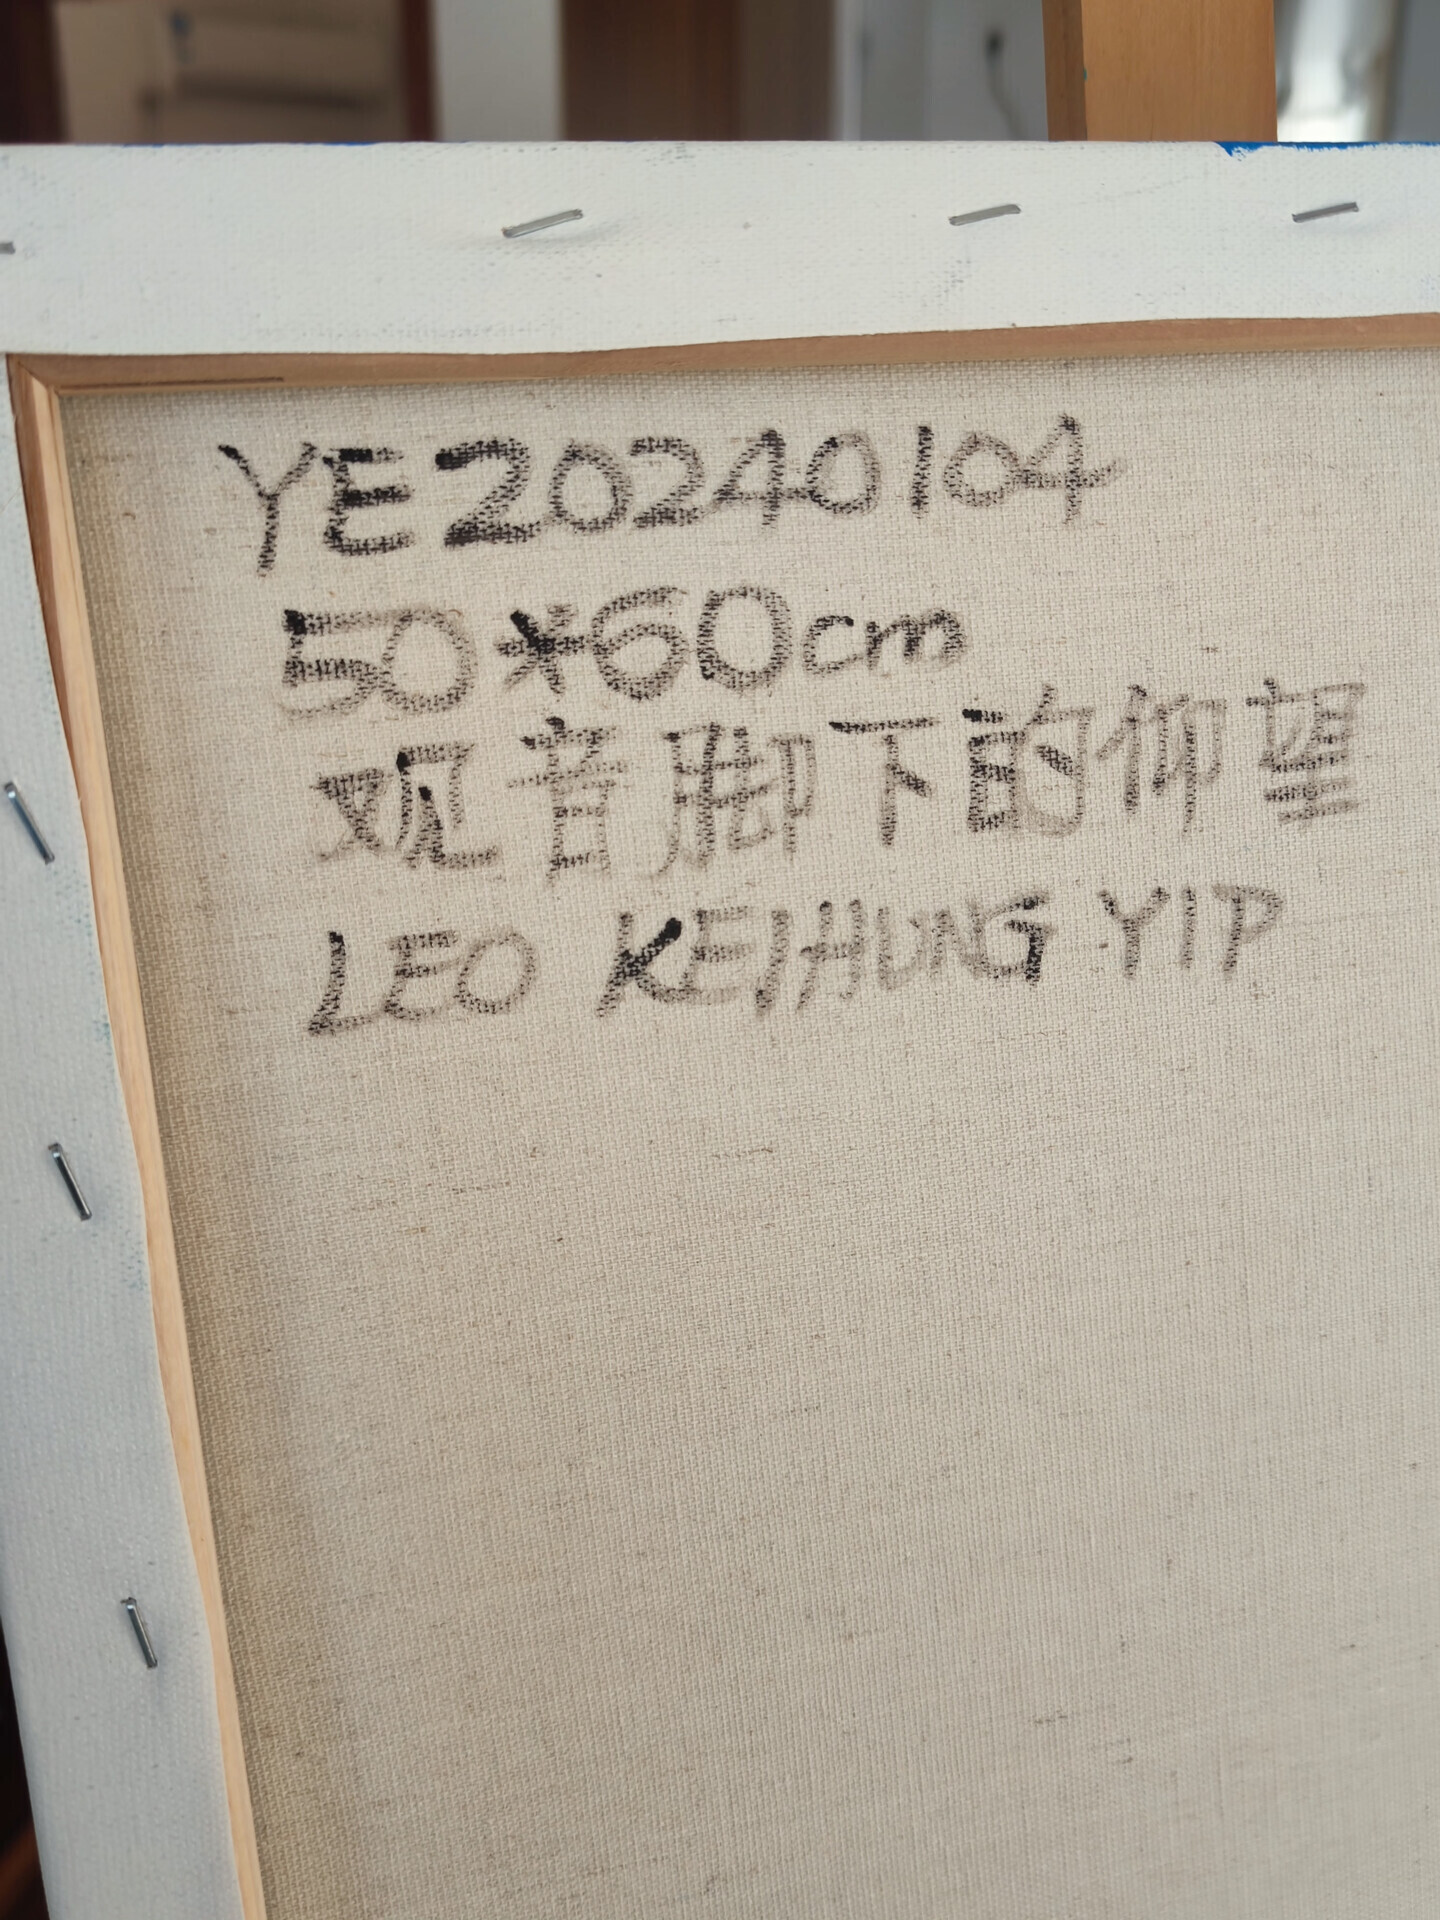 YE20240104
50*60cm
观音脚下的仰望
LEO KEIHUNG YIP